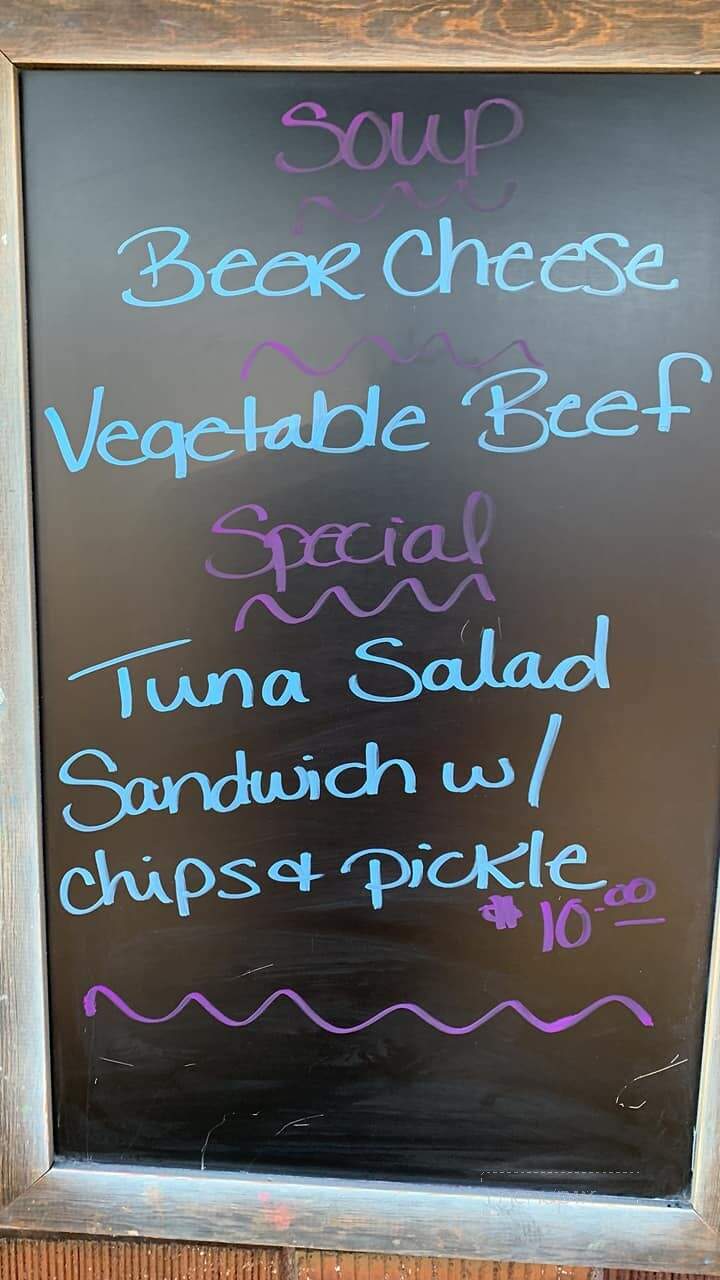 Soup
Beer Cheese
Vegetable Beef
Special
Tuna Salad
Sandwich w/
chips & pickle
$10.00